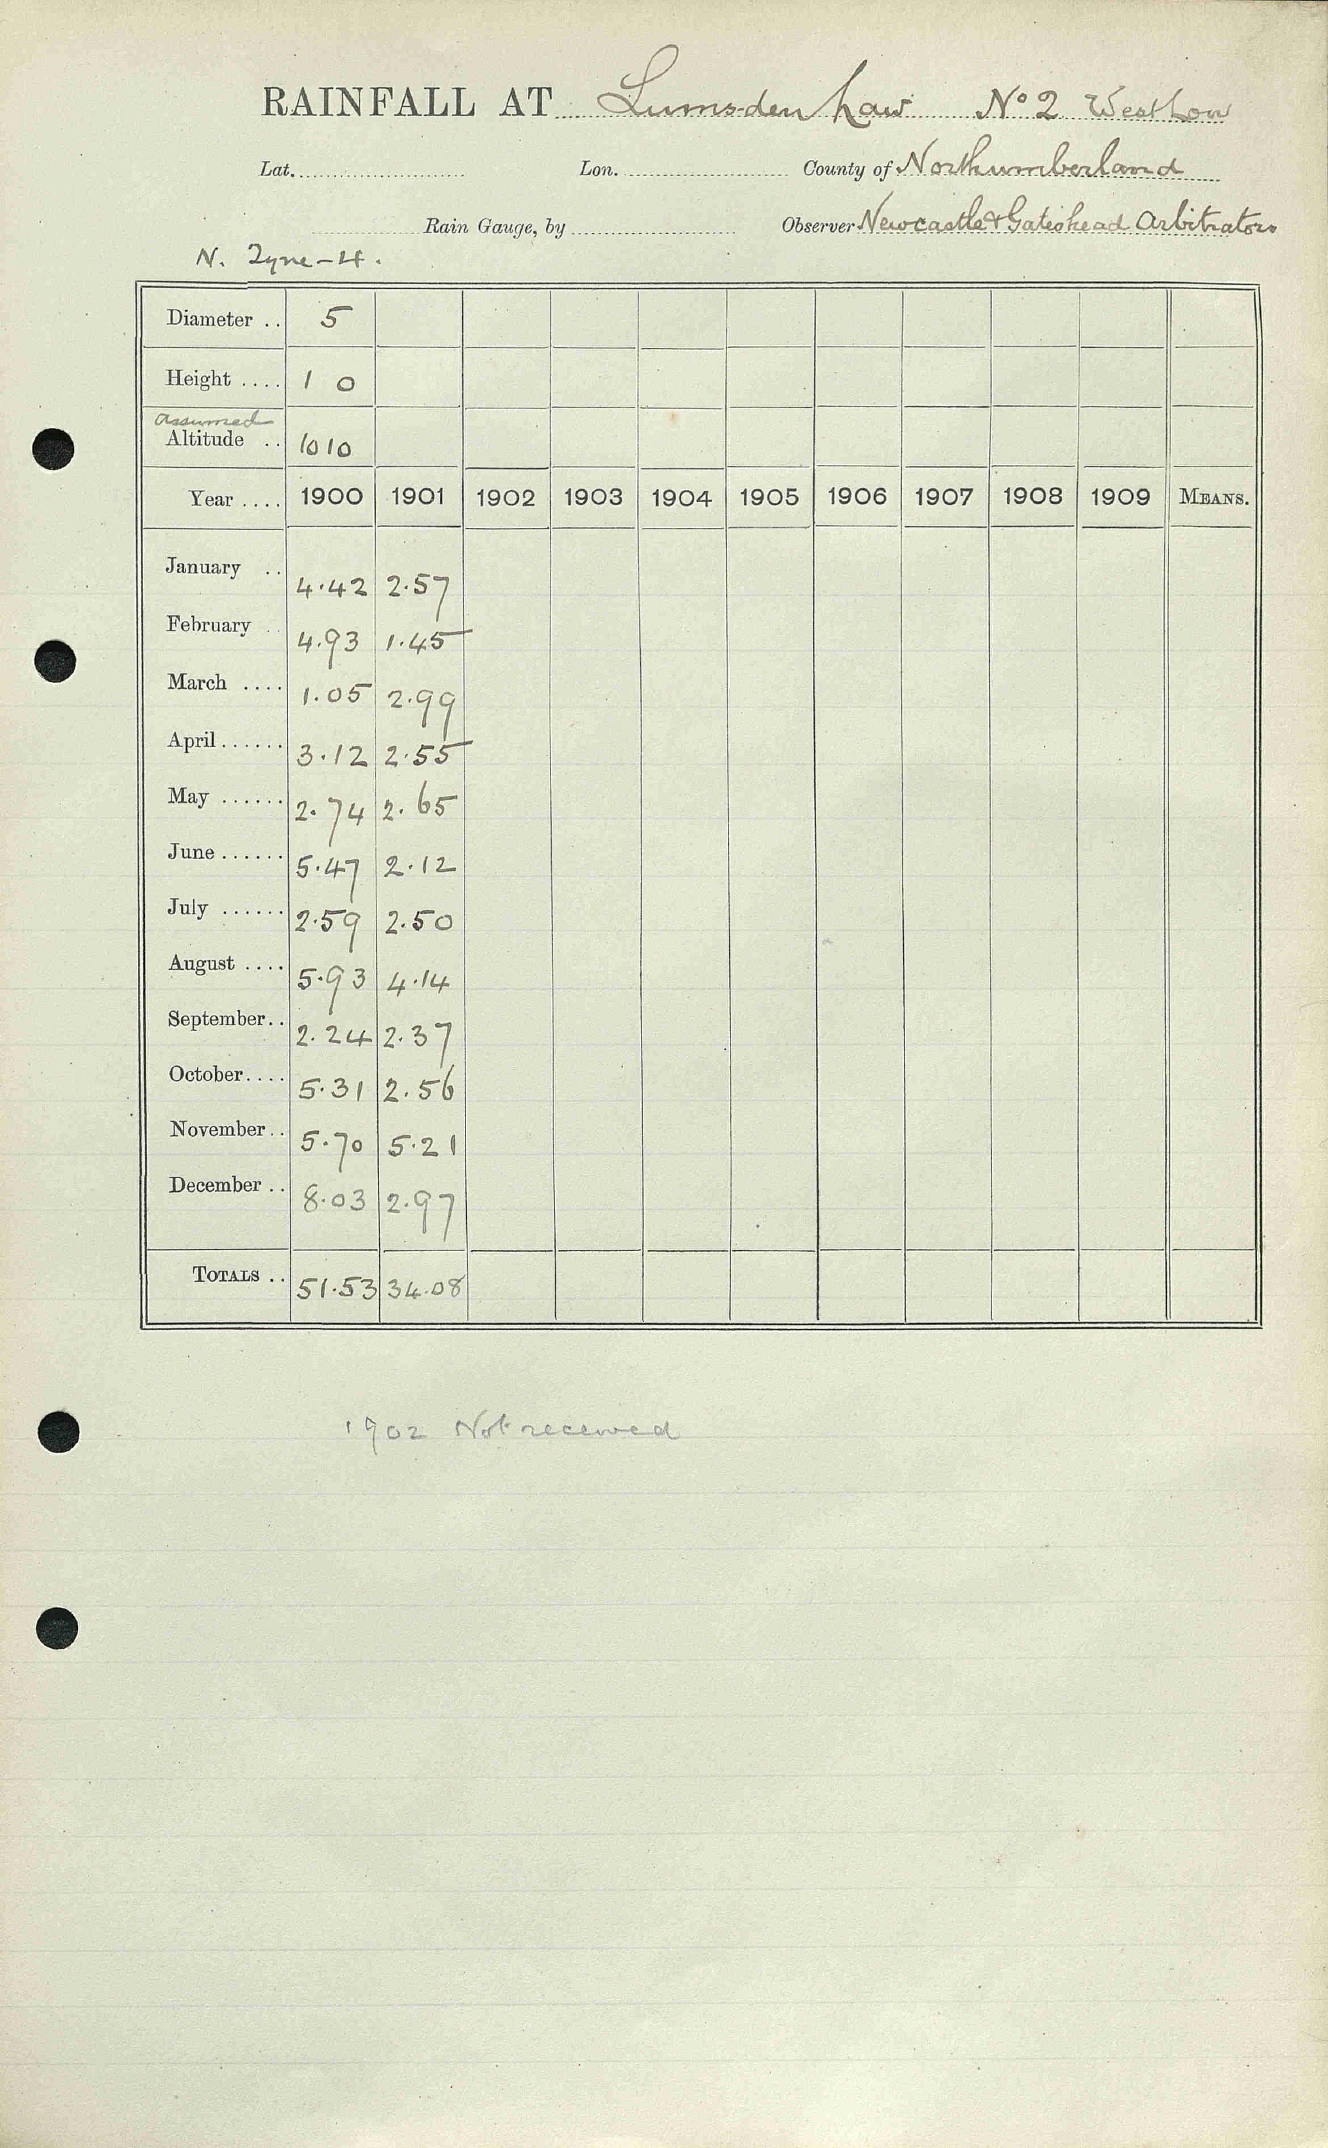 RAINFALL AT Lumsden Law No 2 West Low
Lat. Lon. County of Northumberland
Rain Gauge, by Observer Newcastle & Gateshead Arbitrators
N. Tyne - 4.
Diameter .. 5
Height .... 1 0
assumed
Altitude .. 1010
Year .... 1900 1901 1902 1903 1904 1905 1906 1907 1908 1909 MEANS.
January .. 4.42 2.57
February .. 4.93 1.45
March .... 1.05 2.99
April ...... 3.12 2.55
May ...... 2.74 2.65
June ...... 5.47 2.12
July ...... 2.59 2.50
August .... 5.93 4.14
September .. 2.24 2.37
October .... 5.31 2.56
November .. 5.70 5.21
December .. 8.03 2.97
TOTALS .. 51.53 34.08
1902 Not received